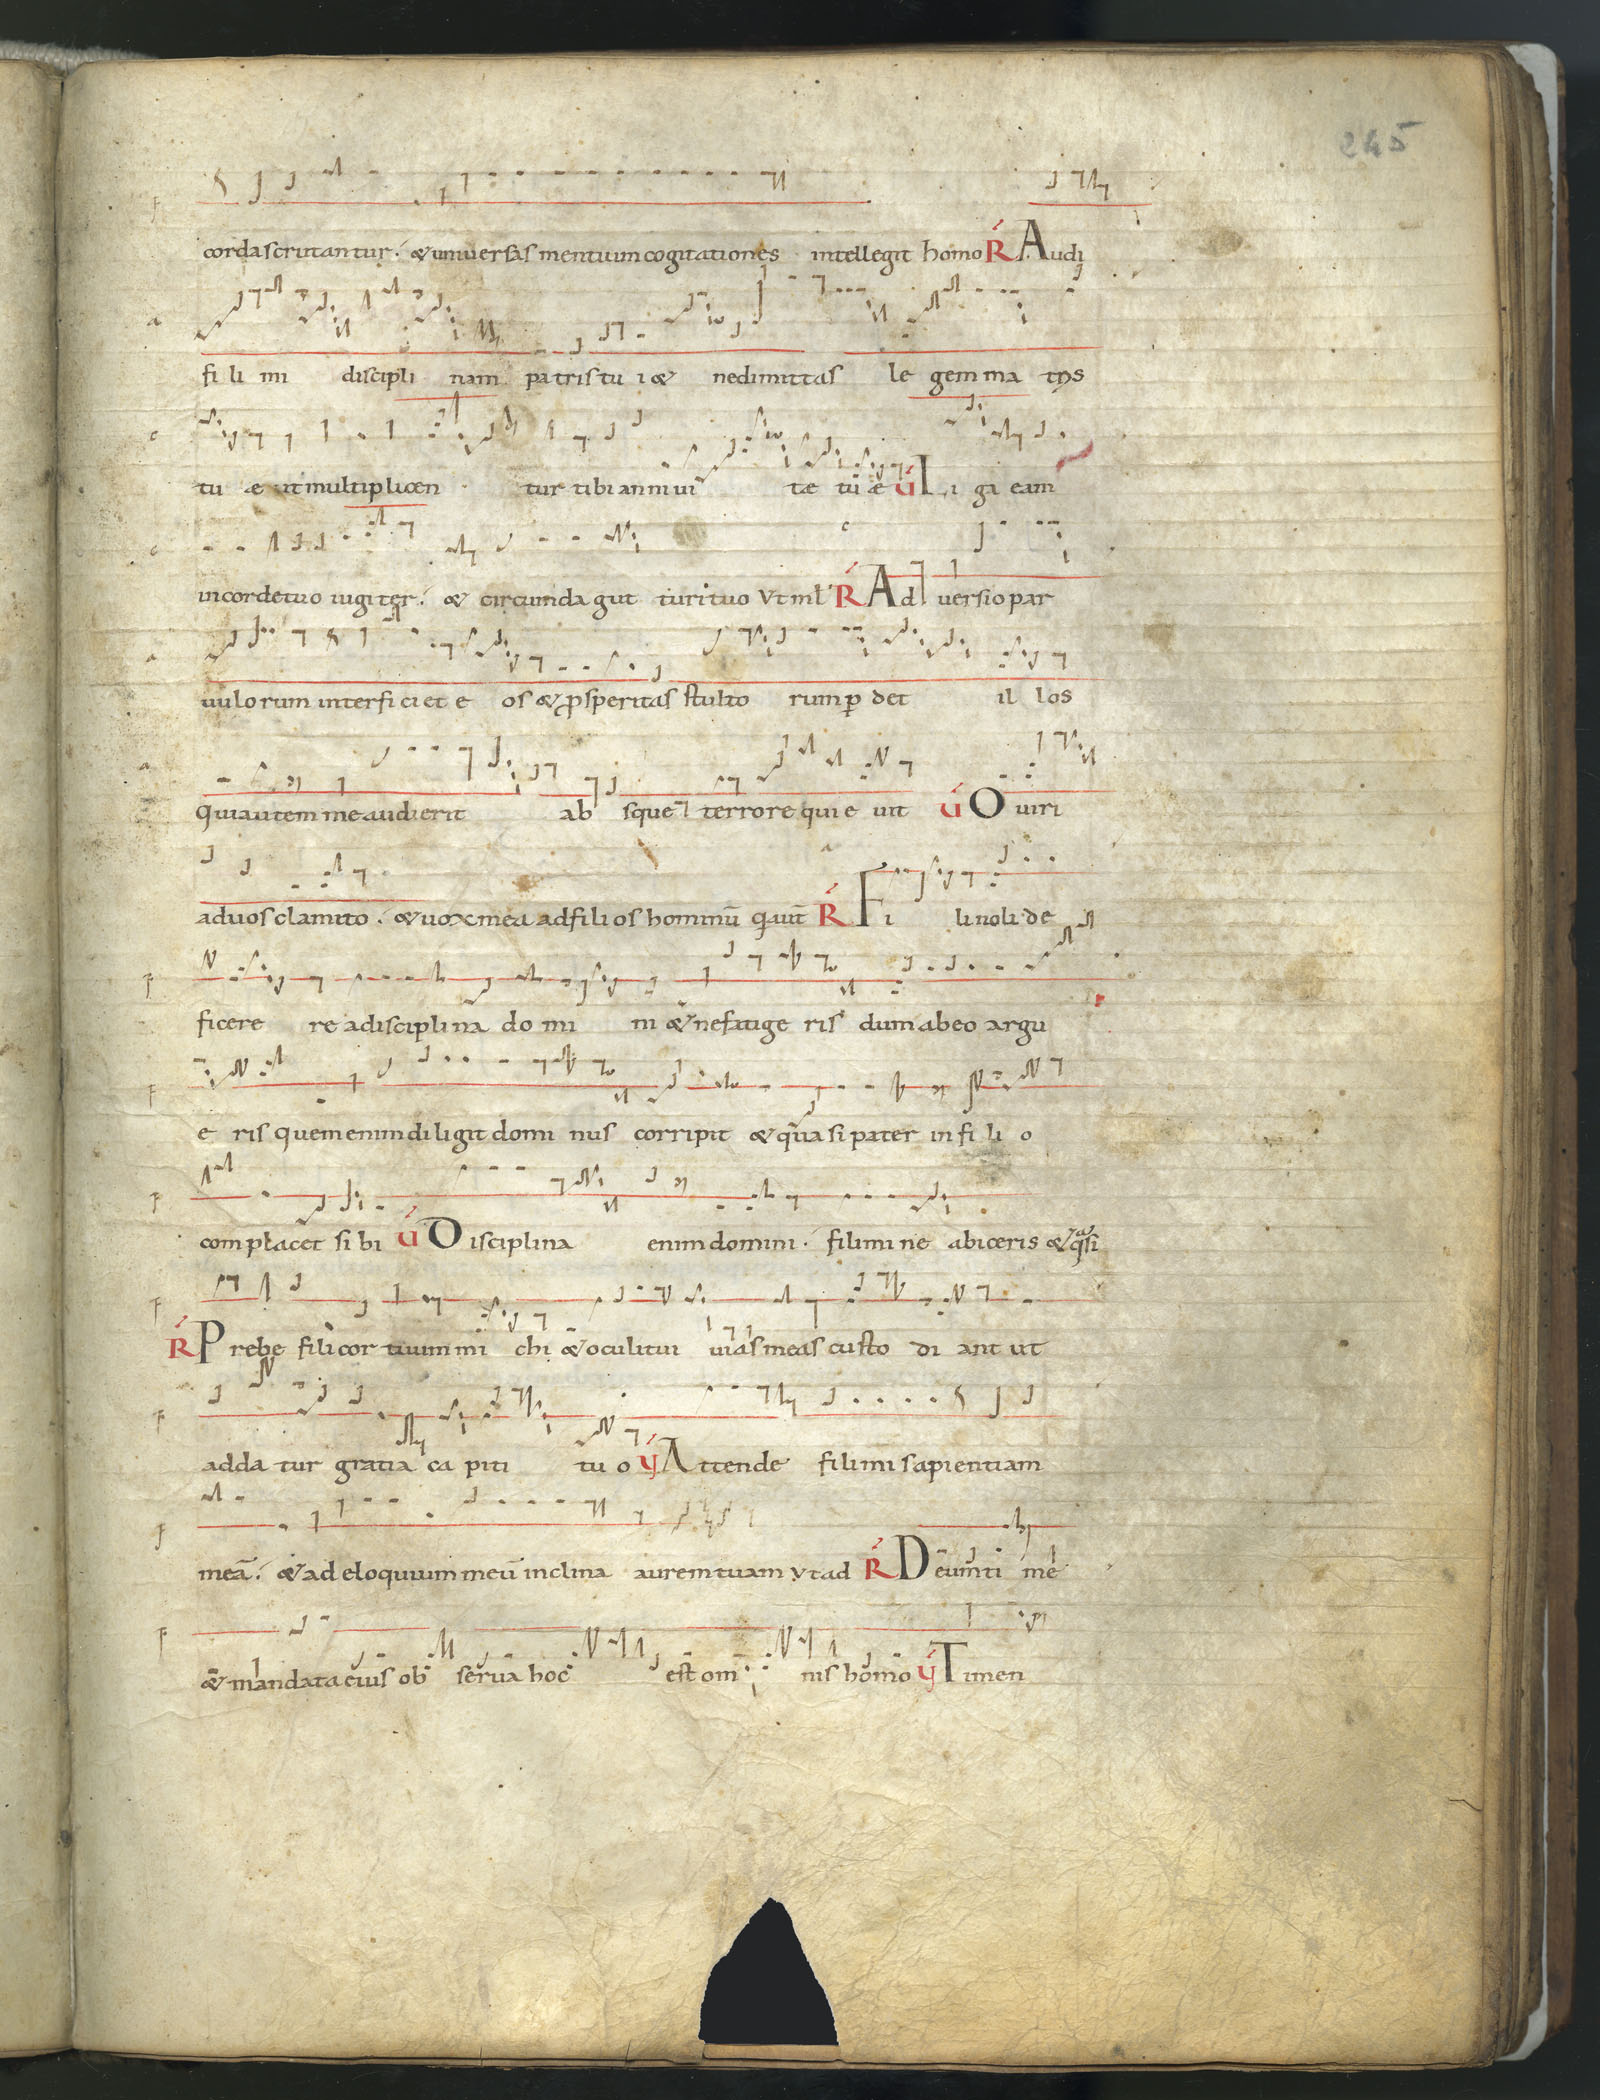 245
corda scrutantur. & universas mentium cogitationes intellegit homo R Audi
fili mi discipli nam patris tu i & ne dimittas le gem ma tris
tu ae ut multiplicen tur tibi anni ui tae tuae V Li ga eam
in corde tuo iugiter. & circumda gut turi tuo Vt ml R Ad uersio par
uulorum interficiet e os & prosperitas stulto rum perdet il los
Qui autem me audierit ab sque terrore qui e uit V O uiri
ad uos clamito. & uox mea ad filios hominū Q aut R Fi li noli de
ficere re a disciplina do mi ni & ne fatige ris dum ab eo argu
e ris quem enim diligit domi nus corripit & quasi pater in fi li o
complacet sibi V Disciplina enim domini. fili mi ne abiceris & qsi
R Prebe fili cor tuum mi chi & oculi tui uias meas custo di ant ut
adda tur gratia ca piti tu o V Attende fili mi sapientiam
meā. & ad eloquium meū inclina aurem tuam Vt ad R Deum ti me
& mandata eius ob serua hoc est om nis homo V Timen